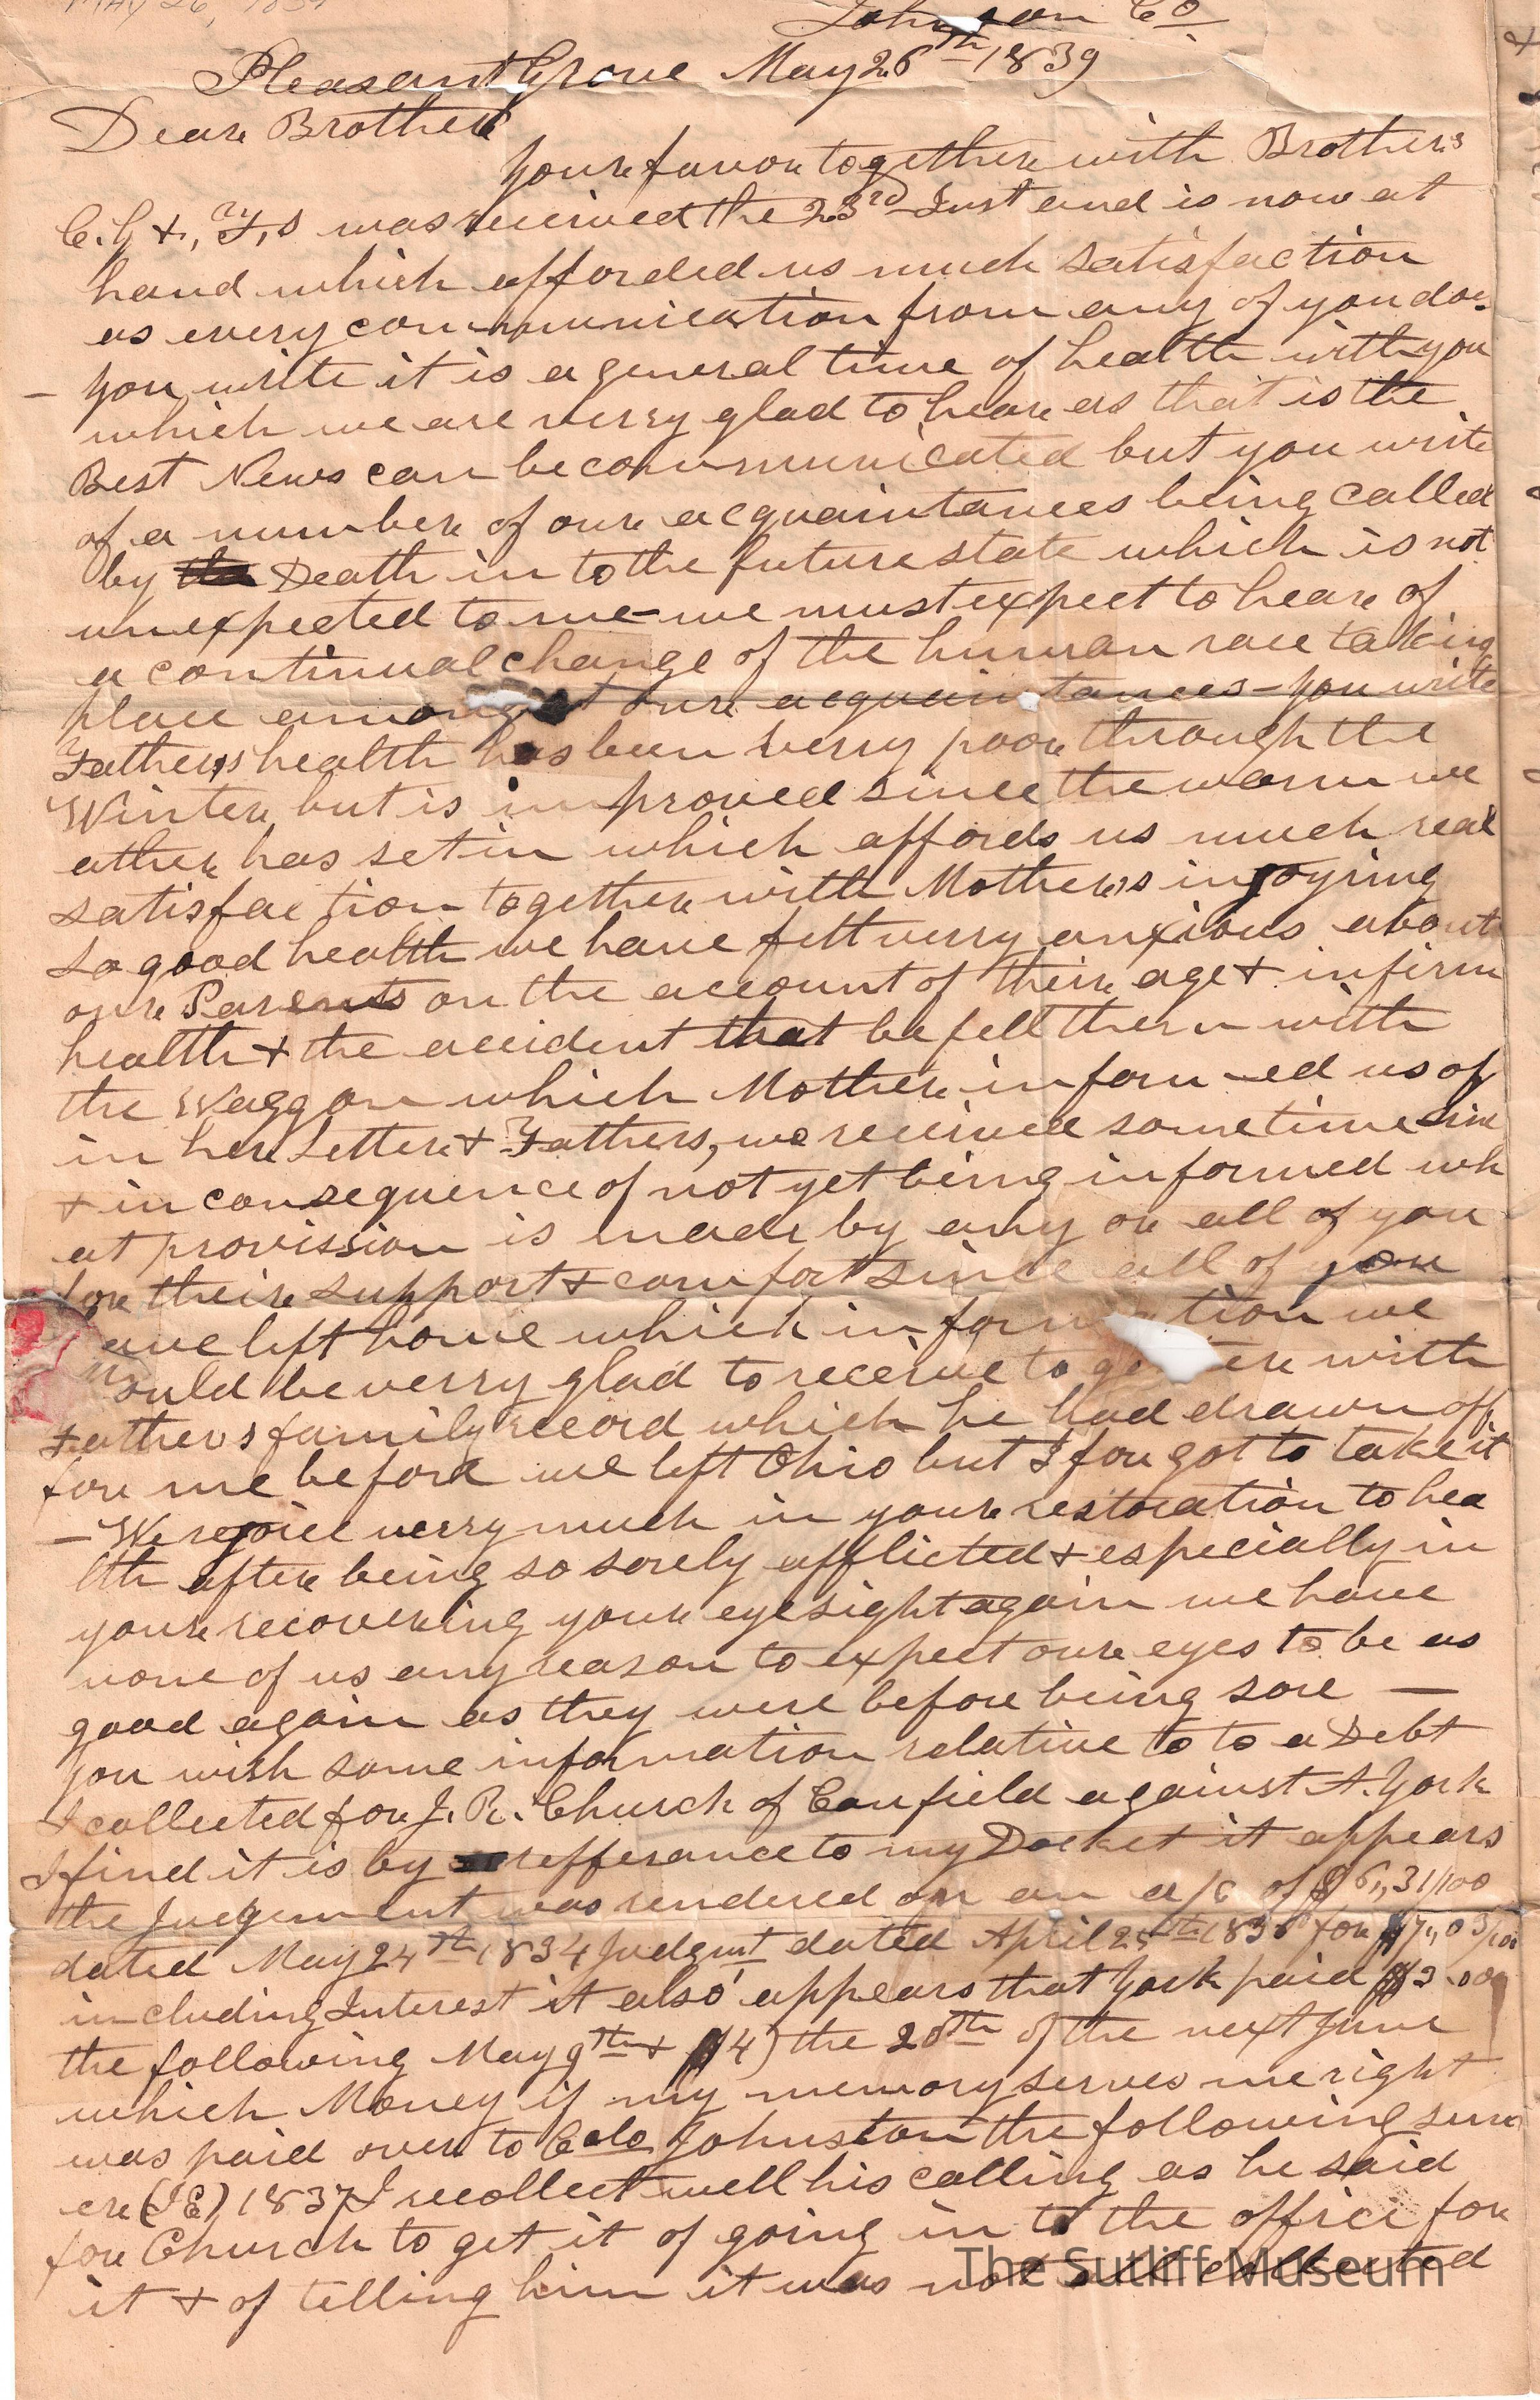 MAY 26, 1839
Johnson Co
Pleasant Grove May 26th 1839
Dear Brother
Youre favor together with Brothers
C. G & F,s was received the 23rd Inst and is now at
hand which afforded us much satisfaction
as every communication from any of you does
– you write it is a general time of health with you
which we are verry glad to heare as that is the
Best News can be communicated but you write
of a number of oure acquaintances being called
by the Death in to the future state which is not
unexpected to me – we must expect to heare of
a continual change of the human race taking
place amongst oure acquaintances – you write
Fathers health has been verry poor through the
Winter but is improved since the warm we
ather has set in which affords us much real
satisfaction together with Mothers injoying
so good health we have felt verry anxious about
oure Parents on the account of their age & infirm
health & the accident that befell them with
the Waggon which Mother informed us of
in her Letter & Fathers, we received sometime sinc
& in consequence of not yet being informed wh
at provission is made by any or all of you
for theire support & comfort since all of you
have left home which information we
would be verry glad to receive together with
Fathers family record which he had drawn off
for me before we left Ohio but I forgot to take it
– We rejoice verry much in youre restoration to hea
lth after being so sorely afflicted & especially in
youre recovering youre eyesight again we have
none of us any reason to expect oure eyes to be as
good again as they were before being sore –
you wish some information relative to to a Debt
I collected for J. R. Church of Canfield against A. York
I find it is by refferance to my Docket it appears
the Judgement was rendered on an a/c of $6,,31/100
dated May 24th 1834 Judgmt dated April 25th 1836 for $7,,03/100
including Interest it also appears that York paid $3.00
the following May 9th & $4) the 20th of the next June
which Money if my memory serves me right
was paid over to Colo Johnston the following sum
er (I E) 1837 I recollect well his calling as he said
for Church to get it of going in to the office for
it & of telling him it was not all collected
The Sutliff Museum